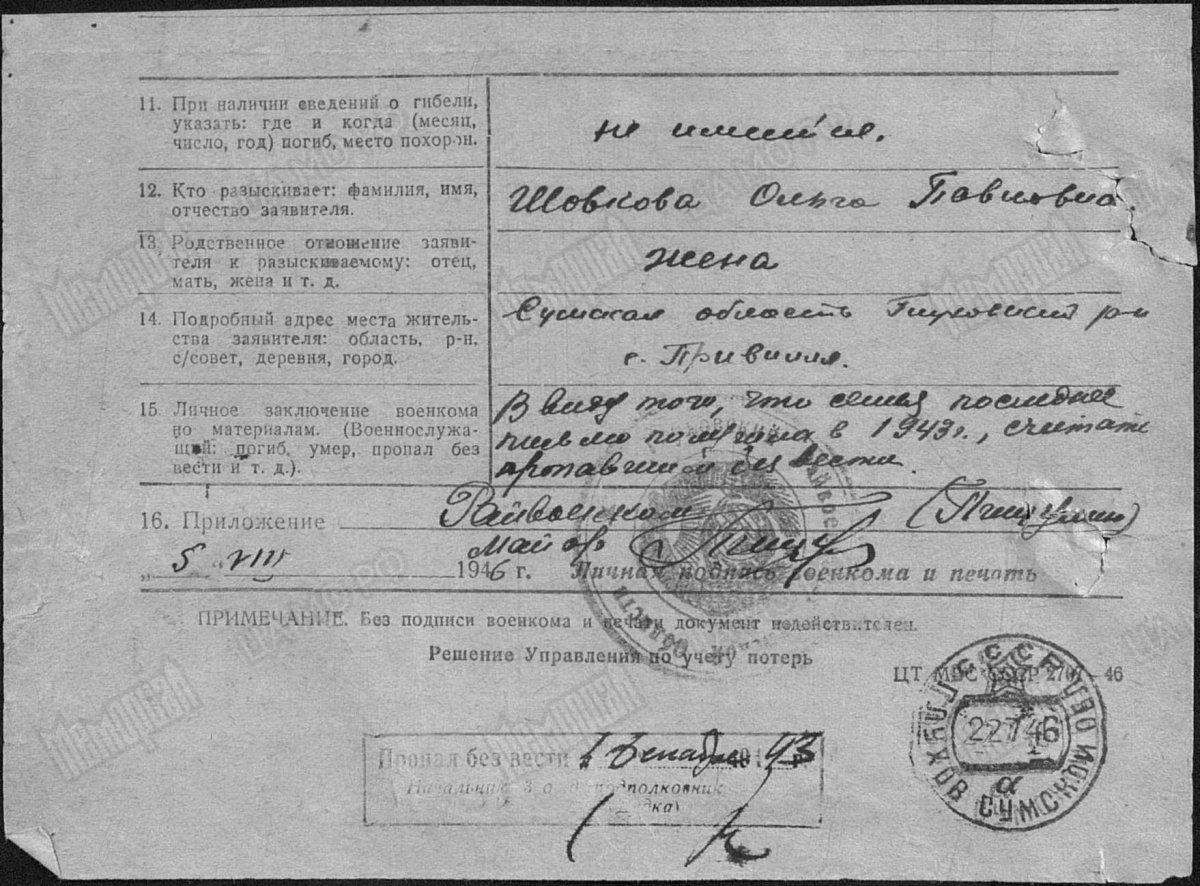 11. При наличии сведений о гибели,
указать: где и когда (месяц,
число, год) погиб, место похорон.
не имеится.
12. Кто разыскивает: фамилия, имя,
отчество заявителя.
Шовкова Ольга Павловна.
13. Родственное отношение заяви-
теля к разыскиваемому: отец,
мать, жена и т. д.
жена
14. Подробный адрес места житель-
ства заявителя: область, р-н,
с/совет, деревня, город.
Сумская область Глуховский р-н
с. Привилля.
15. Личное заключение военкома
по материалам. (Военнослужа-
щий: погиб, умер, пропал без
вести и т. д.).
В виду того, что семья последнее
письмо получила в 1943 г., считать
пропавшим без вести.
16. Приложение
Райвоенком
Майор
„ 5 " VIII 1946 г. Личная подпись военкома и печать
ПРИМЕЧАНИЕ. Без подписи военкома и печати документ недействителен.
Решение Управления по учету потерь
ЦТ МВС СССР 2701—46
Пропал без вести 1 декабр 1943
Начальник 3 о подполковник
СССР
ГЛУХОВ СУМСКОЙ
Мемориал
Мемориал
Мемориал
Мемориал
Мемориал
ЦАМО РФ